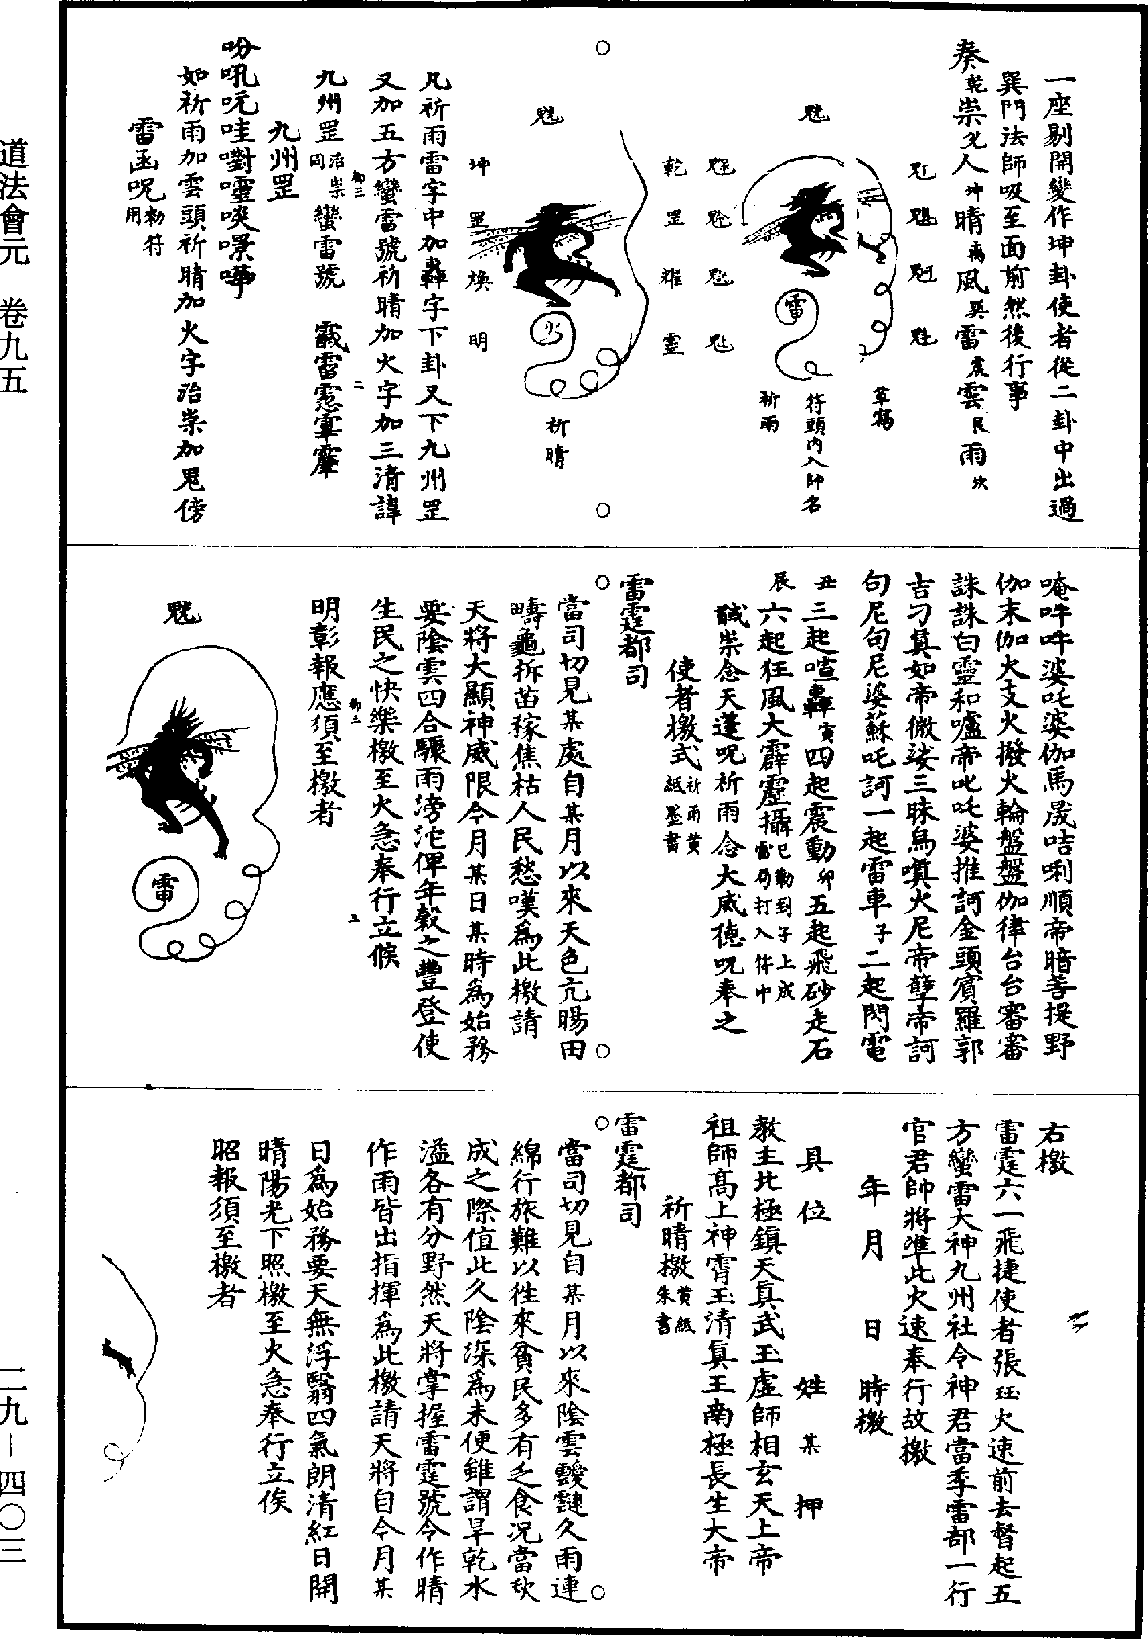 一座剔開變作坤卦使者從二卦中出過
巽門法師吸至面前然後行事
奏乾祟兌人坤晴离風巽雷震雲艮雨坎
草稿
符頭内入師名
祈雨
雷
乾罡耀靈
祈晴
坤罡煥明
凡祈雨雷字中加轟字下卦又下九州罡
又加五方蠻雷號祈晴加火字加三清諱
九州罡治祟同蠻雷號
九州罡
如祈雨加雲頭祈晴加火字治祟加鬼傍
雷函呪勑符用
唵吽吽婆吒婆伽馬晟咭唎順帝暗菩提野
伽末伽大支火撥火輪盤盤伽律台台審審
誅誅白靈和嚧帝叱吒婆推訶金頭賓羅郭
吉刁真如帝微娑三昧烏嗔火尼帝孽帝訶
句尼句尼娑蘇吒訶一起雷車子二起閃電
丑三起喧轟寅四起震動卯五起飛砂走石
辰六起狂風大霹靂攝巳勑到子上成雷局打入符中
馘祟念天蓬呪祈雨念大威德呪奉之
使者檄式祈雨黄紙墨書
雷霆都司
當司切見某處自某月以來天色亢暘田
疇龜拆苗稼焦枯人民愁嘆爲此檄請
天將大顯神威限今月某日某時爲始務
要陰雲四合驟雨滂沱俾年穀之豐登使
生民之快樂檄至火急奉行立候
明彰報應須至檄者
雷
右檄
雷霆六一飛捷使者張珏火速前去督起五
方蠻雷大神九州社令神君當季雷部一行
官君帥將準此火速奉行故檄
年月日時檄
具位姓某押
教主北極鎮天真武玉虛師相玄天上帝
祖師高上神霄玉清真王南極長生大帝
祈晴檄黄紙朱書
雷霆都司
當司切見自某月以來陰雲靉靆久雨連
綿行旅難以往來貧民多有乏食况當秋
成之際值此久陰深爲未便雖謂旱乾水
溢各有分野然天將掌握雷霆號令作晴
作雨皆出指揮爲此檄請天將自今月某
日爲始務要天無浮翳四氣朗清紅日開
晴陽光下照檄至火急奉行立俟
昭報須至檄者
道法會元 卷九五
二九—四〇三